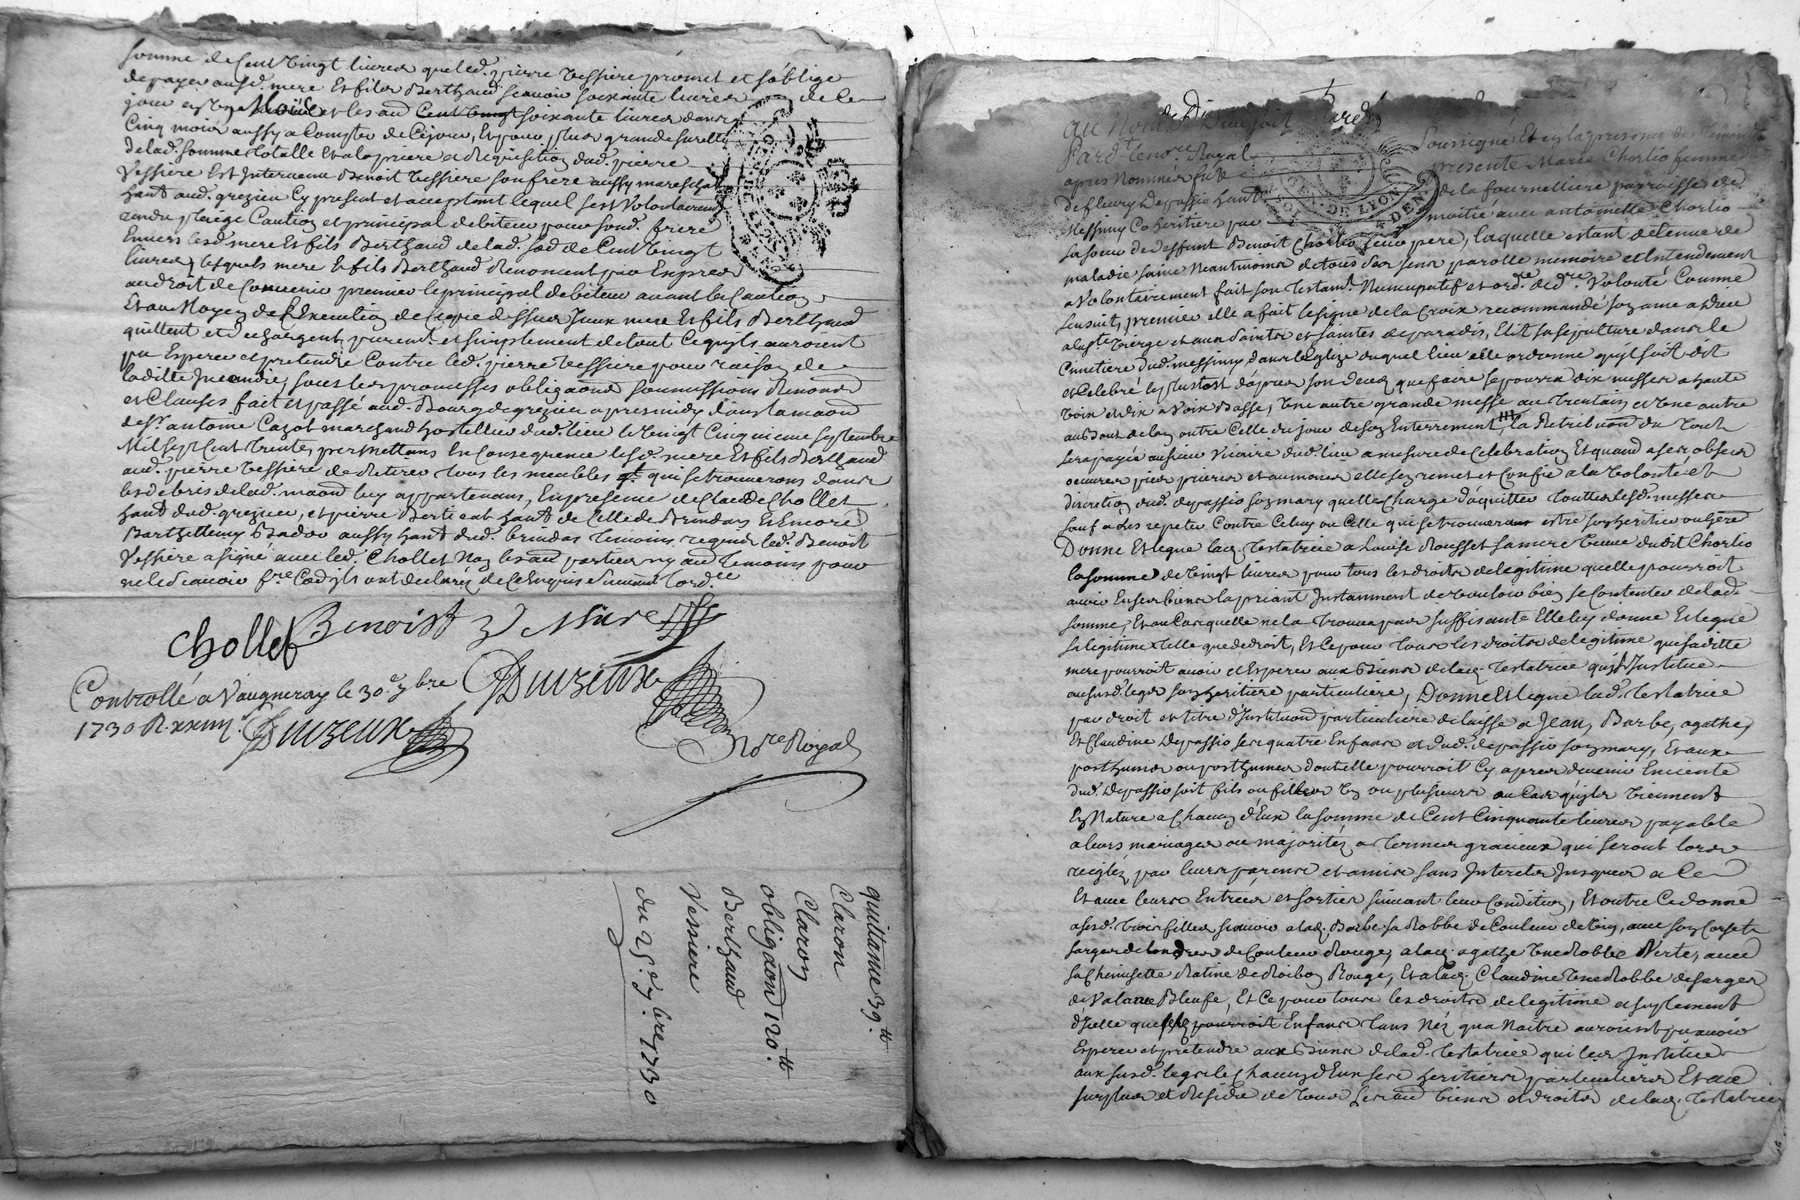 somme de Cent Vingt livres que led. pierre Vessiere promet et s'oblige
de payer ausd. mere Et fils Berthaud scavoir soixante livres de ce
jour et les au soixante livres dans
Cinq mois aussy a Compter de Cejour, Et pour plus grande suretté
delad. somme totalle Et a la priere et Requisition dud. pierre
Vessiere Est Intervenu Benoit Vessiere son frere aussy mareschal
hant aud. grezieu Cy present et acceptant lequel s'est Volontairement
rendu pleige Caution et principal debiteur pour sond. frere
Envers lesd. mere Et fils Berthaud de lad. so. de Cent Vingt
livres, lesquels mere Et fils Berthaud Renoncent par Expres
au droit de Convenir premier le principal debiteur avant la Caution
Et au Moyen de l'Execution de Ce que dessus Iceux mere Et fils Berthaud
quittent et dechargent purem.t et simplement de tout Ce quyls auroient
pu Esperer et pretendre Contre led. pierre Vessiere pour raison de
laditte Incendie, sous les promesses obliga͠ons soumissions Renon͠s
et Clauses fait et passé aud. Bourg de grezieu apres midy dans la maison
de Sr. antome Cazot marchand hostellier dud. lieu le Vingt Cinquieme septembre
Mil sept Cent Trente, permettans En Consequence lesd. mere Et fils Berthaud
aud. pierre Vessiere de Retirer tous les meubles qui se trouverons dans
les debris de lad. maison luy appartenans, En presence de Claude Chollet
hant dud. grezieu, et pierre Berticat hant de Celle de Brindas Et Encore
Barthellemy Badou aussy hant dud. brindas temoins requis led. Benoit
Vessiere a signé avec led. Chollet Non les au. parties ny au. Temoins pour
ne le scavoir f.re Co͠e dyls ont declarez de Ce Enquis suivant l'ord.ce
Chollet Benoist
Duzeux
Controllé a Vaugneray le 30.e 7bre
1730 R. xxiiij s. Duzeux No.re Royal
quittance 39.lt
Claron
Claron
obliga͠on 120.lt
Berthaud
Vessiere
du 25.e 7bre 1730
au Nom de Dieu soit
Pard. Le no.re Royal Soussigné Et en la presence des Temoins
apres Nommez fut presente Marie Chorlio femme
de fleury Depassio hant de la fournelliere parroisse de
Messimy Coheritiere par moitié avec antoinette Chorlio
sa soeur de deffunt Benoit Chorlio leur pere, laquelle estant detenue de
maladie saine Neantmoins de tous ses sens parolle memoire et Entendement
a Volontairement fait son Testam.t Nuncupatif et ord.re de d.re Volonté Comme
sensuit, premier elle a fait le signe de la Croix recommandé son ame a Dieu
a la ste Vierge et aux Saints et saintes de paradis, Elit sa sepulture dans le
Cimetiere dud. messimy dans l'Eglize duquel lieu elle ordonne qu'il soit dit
et Celebré le plustost d'apres son deces que faire se pourra dix messes a haute
Voix et dix a Voix Basse, Une autre grande messe au trentain et Une autre
au Bout de l'an outre Celle du jour de son Enterrement la Retribution du tout
sera payée au sieur Vicaire dud. lieu a mesure de Celebration, Et quand a ses obseques
oeuvres pies prieres et aumones elle s'en remet et Confie a la Volonté et
discretion dud. depassio son mary quelle Charge d'aquitter Touttes lesd. messes
sauf a les repeter Contre Celuy ou Celle qui se trouvera estre son heritier ou here
Donne Et legue lad. Testatrice a Louise Rousset sa mere Veuve dudit Chorlio
la somme de Vingt livres pour tous les droits de legitime quelle pourroit
avoir En ses biens la priant Instamment de Vouloir bien se Contenter de lad.
somme, Et au Cas quelle ne la trouva pas suffisante Elle luy donne Et legue
sa legitime Telle que de droit, Et Ce pour tous les droits de legitime que saditte
mere pourroit avoir et Esperer aux Biens de lad. Testatrice quy l'Institue
au susd. legs son heritiere particuliere, Donne Et legue lad. Testatrice
par droit et titre d'Institution particuliere delaisse a Jean, Barbe, agathe,
Et Claudine Depassio ses quatre Enfans et dud. depassio son mary, Et aux
posthumes ou posthumes dont elle pourroit Cy apres devenir Enceinte
dud. Depassio soit fils ou filles Un ou plusieurs au Cas qu'ils Viennent
En Nature a Chacun d'Eux la somme de Cent Cinquante livres payable
a leurs mariages ou majoritez a Termes gracieux qui seront lors
reiglez par leurs parens et amis sans Interets Jusques a lo
Et avec leurs Entrées et sorties suivant leur Condition, Et outre Ce donne
a sesd. trois filles scavoir a lad. Barbe sa Robbe de Couleur de Vin, avec son Corset
sarges de londres de Couleur Rouge, a lad. agathe Une Robbe Verte, avec
sa Chemisette Ratine de Roibon Rouge, Et a lad. Claudine Une Robbe de sarges
de Valance Bleufe, Et Ce pour tous les droits de legitime et suplement
d'Icelle que pourroit Enfans tans Nez qua Naitre auroient pu avoir
Esperer et pretendre aux Biens de lad. Testatrice qui les Institue
aux susd. legs le Chacun d'Eux ses heritiers particuliers Et au
surplus et Residu de tous ses au. biens et droits de lad. Testatrice